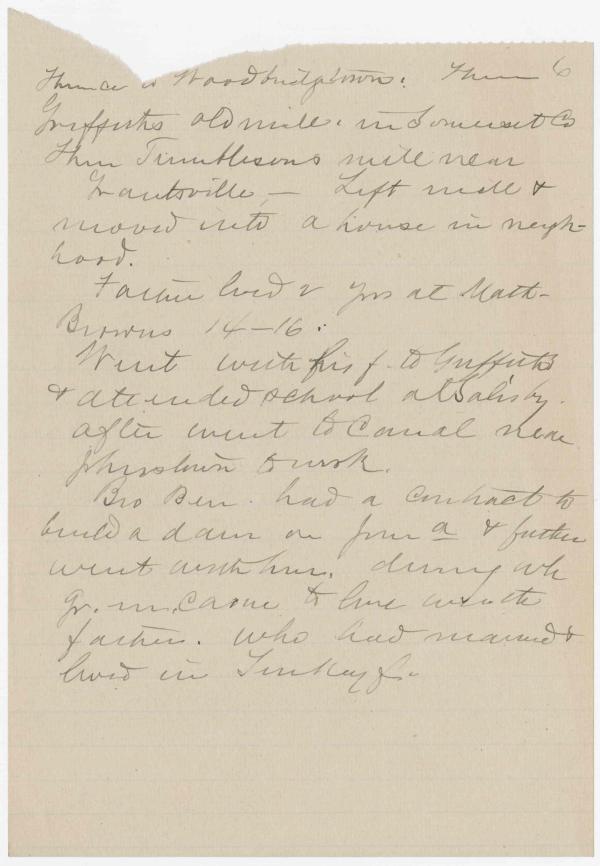 Thence to Woodbridgetown. Then 6
Griffiths old mill. in Somerset Co
then Tumblesons mill near
Grantsville, — Left mill &
moved into a house in neigh-
hood.
Father lived 2 yrs at Math-
Browns 14–16.
Went with his f. to Griffiths
& attended school at Salisby.
after went to Canal near
Johnstown to work.
Bro Ben. had a contract to
build a dam on & father
went with him. during wh
gr. m. came to live with
father. who had married &
lived in Turkeyft.